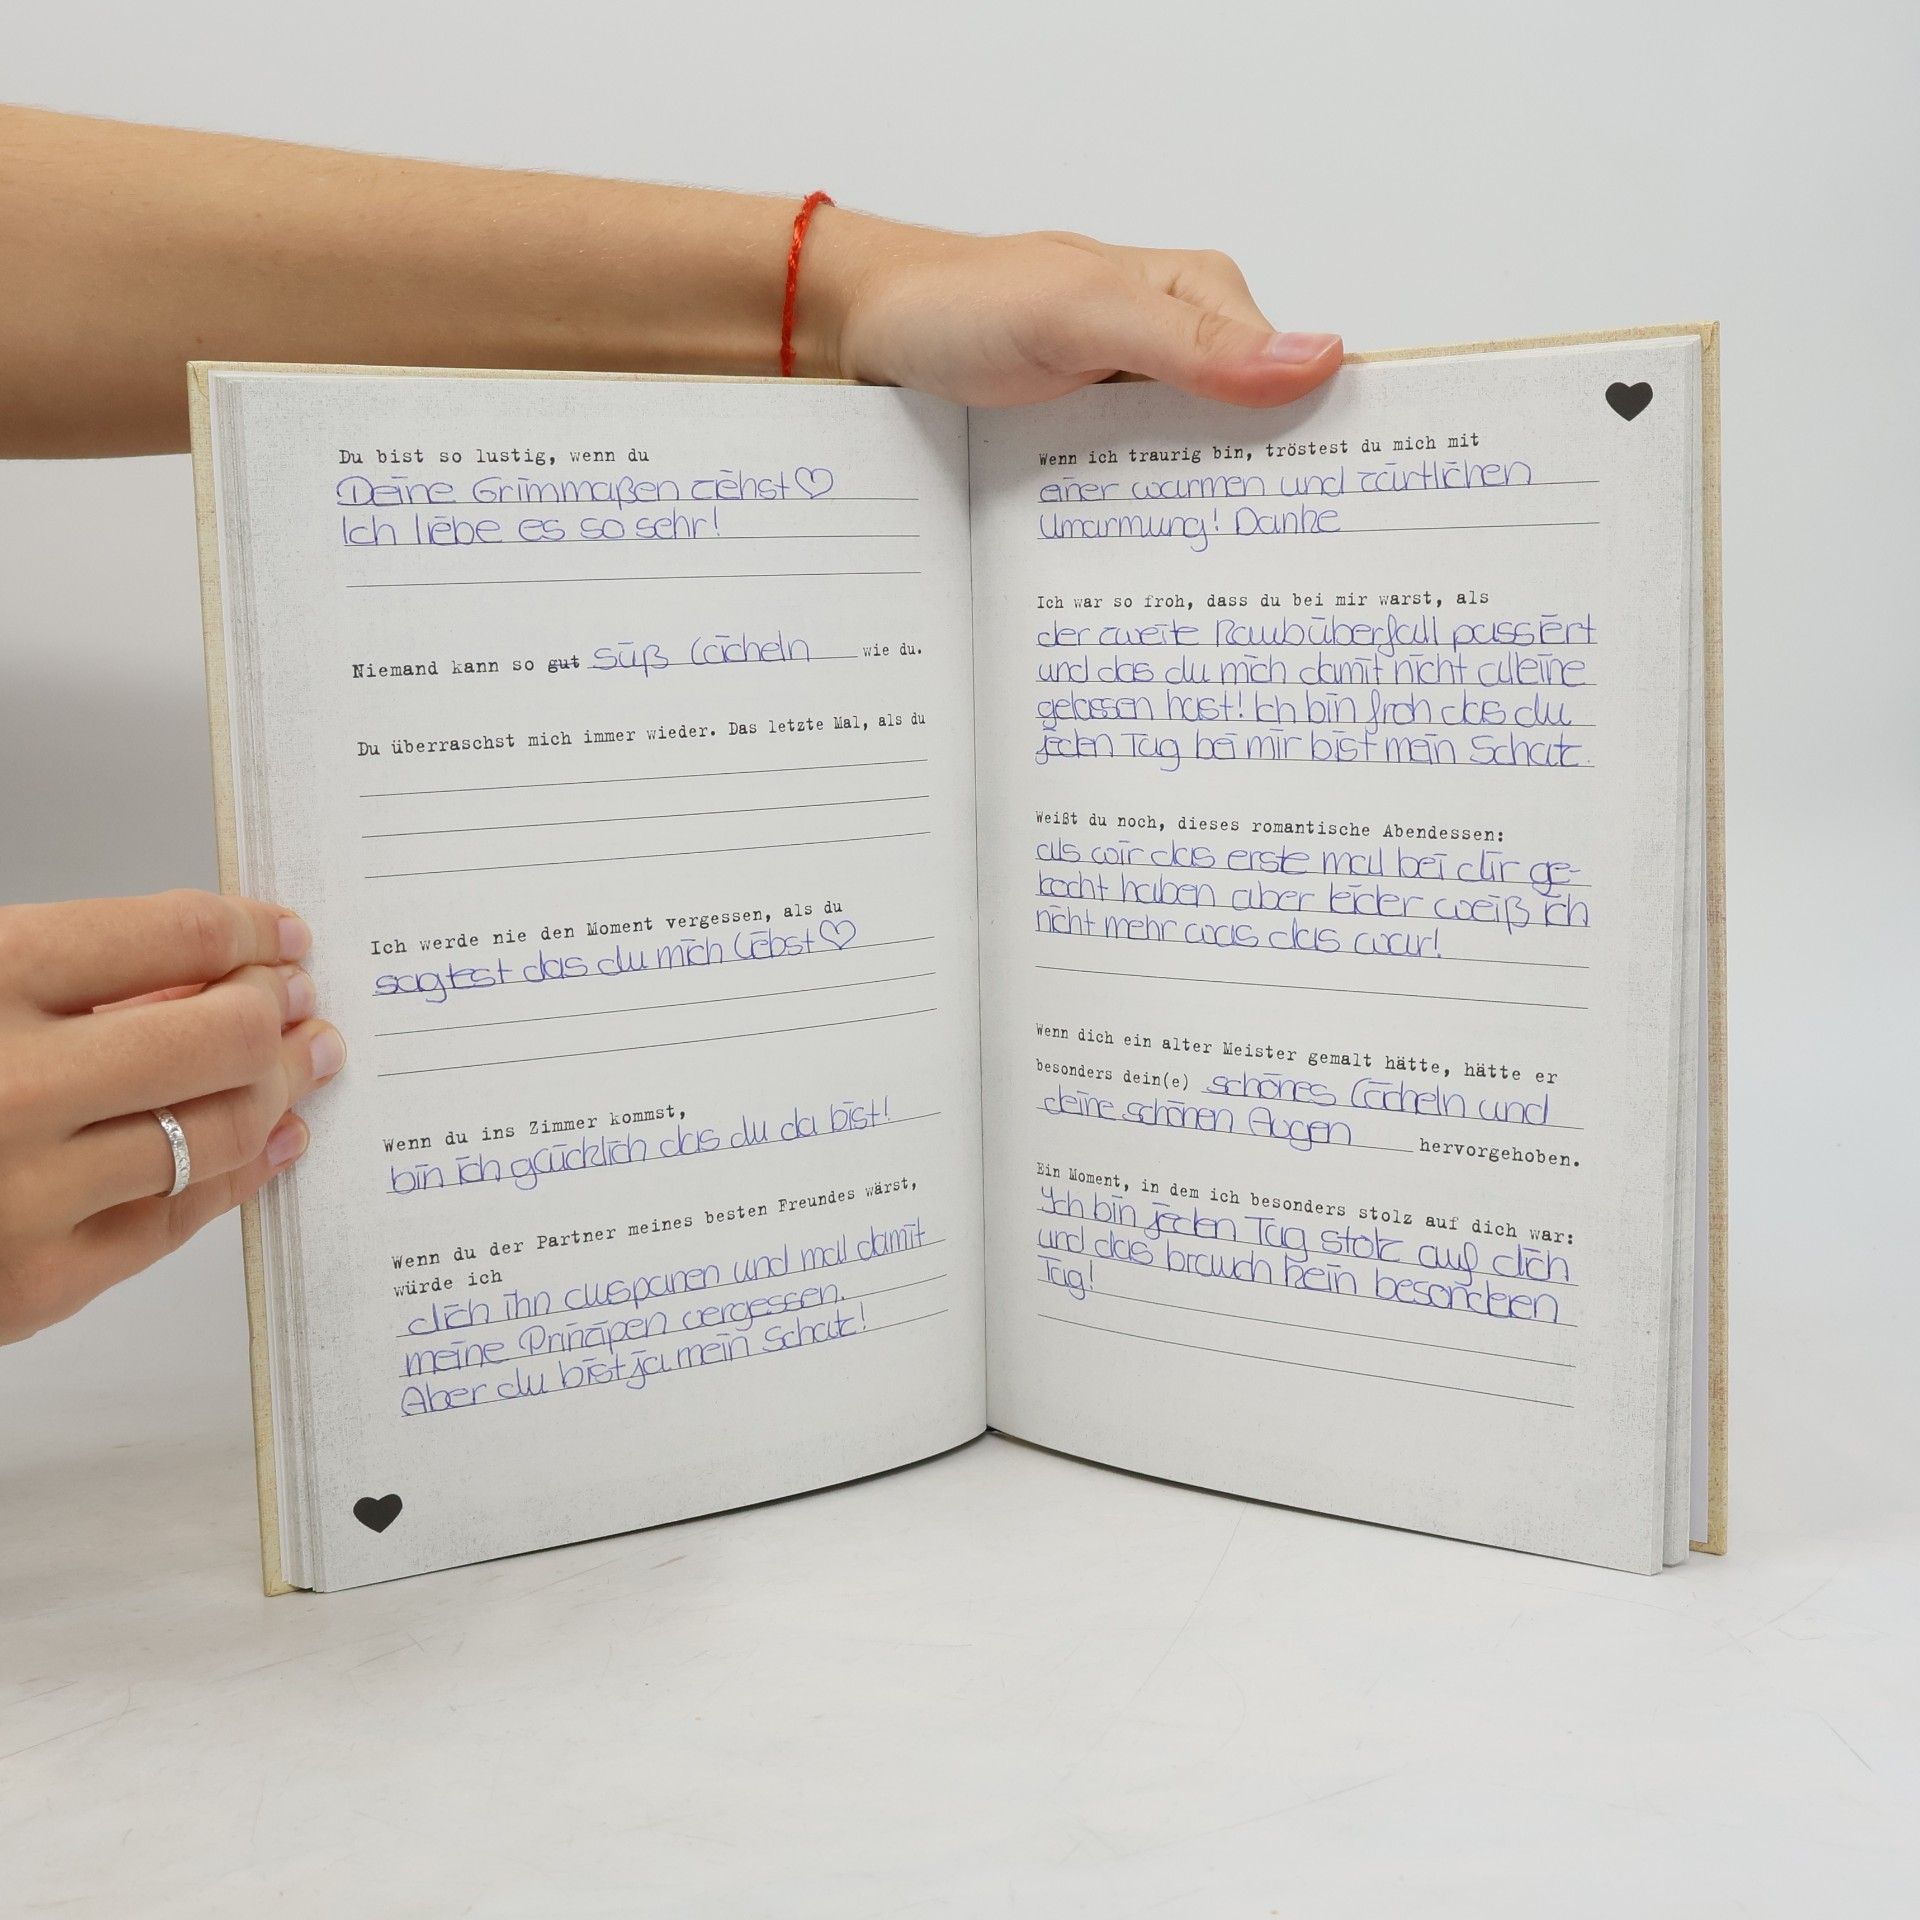 Du bist so lustig, wenn du
Deine Grimmaßen ziehst♡
Ich liebe es so sehr!
Niemand kann so gut süß lächeln wie du.
Du überraschst mich immer wieder. Das letzte Mal, als du
Ich werde nie den Moment vergessen, als du
sagtest das du mich liebst♡
Wenn du ins Zimmer kommst,
bin ich glücklich das du da bist!
Wenn du der Partner meines besten Freundes wärst,
würde ich
dich ihn ausspanen und mal damit
meine Prinzipen vergessen.
Aber du bist ja mein Schatz!
Wenn ich traurig bin, tröstest du mich mit
einer warmen und zärtlichen
Umarmung! Danke
Ich war so froh, dass du bei mir warst, als
der zweite Raubüberfall passiert
und das du mich damit nicht alleine
gelassen hast! Ich bin froh das du
jeden Tag bei mir bist mein Schatz.
Weißt du noch, dieses romantische Abendessen:
als wir das erste mal bei dir ge-
kocht haben aber leider weiß ich
nicht mehr was das war!
Wenn dich ein alter Meister gemalt hätte, hätte er
besonders dein(e) schönes Lächeln und
deine schönen Augen hervorgehoben.
Ein Moment, in dem ich besonders stolz auf dich war:
Ich bin jeden Tag stolz auf dich
und das brauch kein besonderen
Tag!